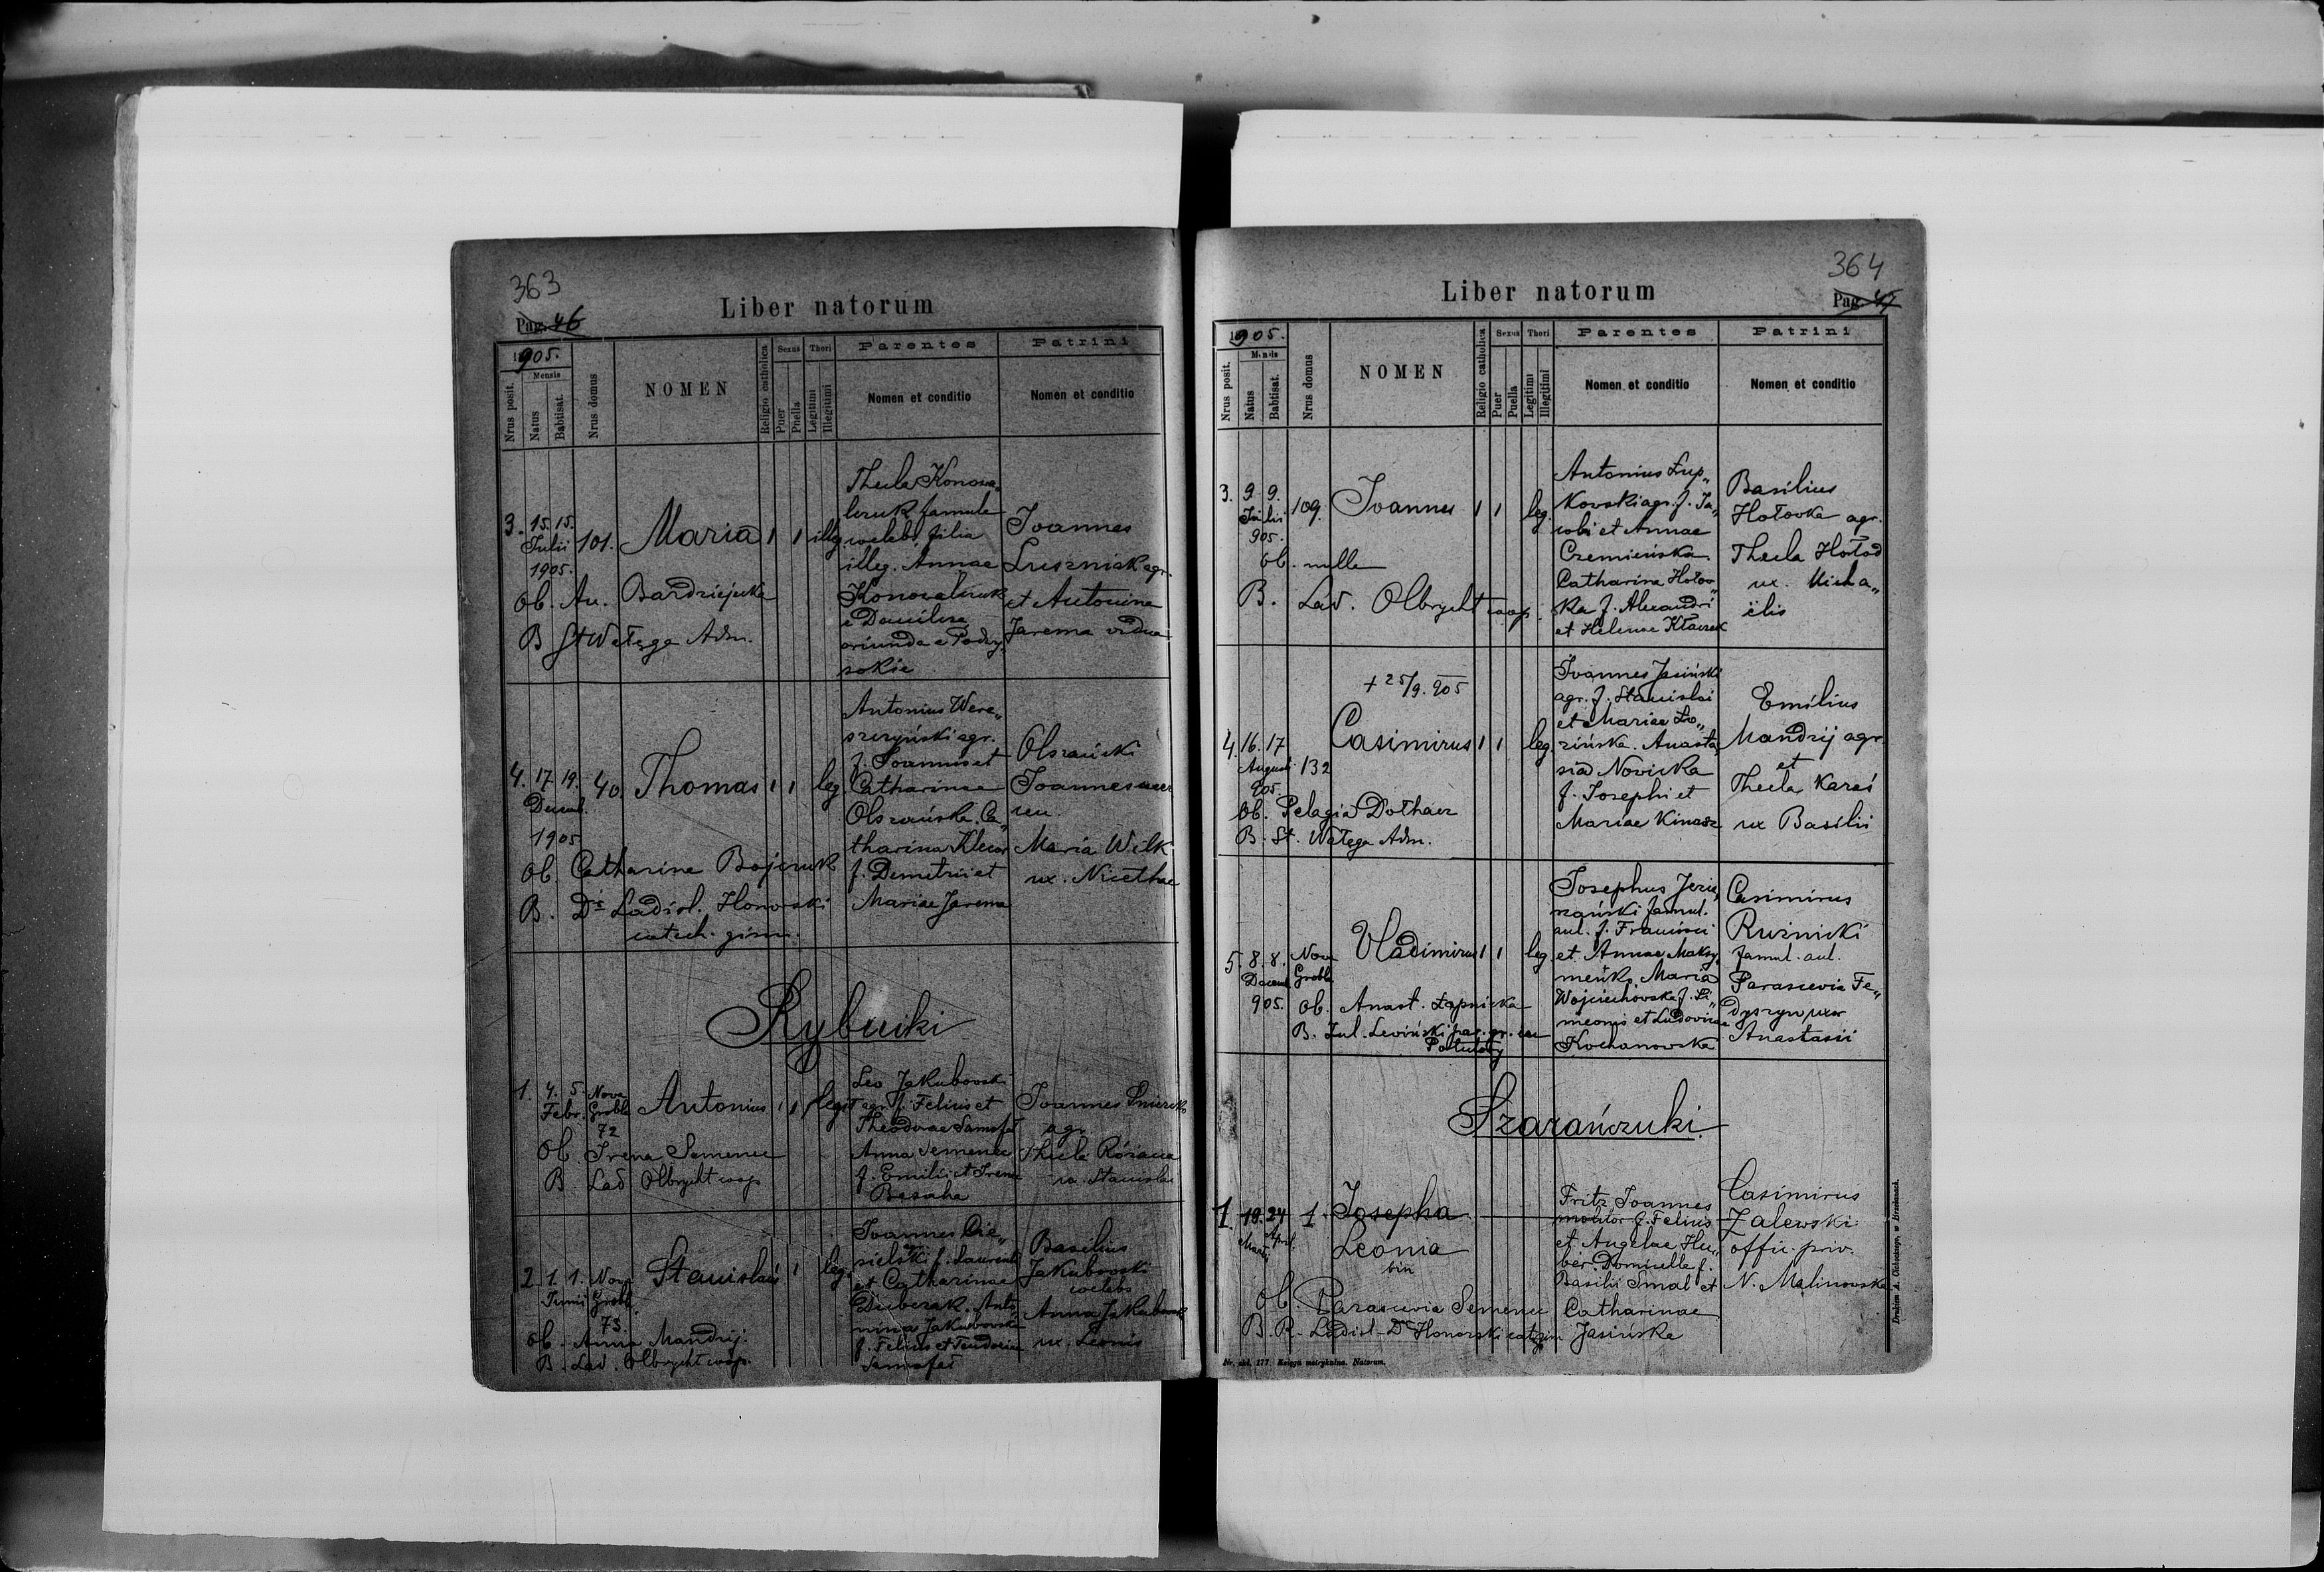 363
Pag. 46
Liber natorum
1905.
Mensis
Nrus posit.
Natus
Babtisat.
Nrus domus
NOMEN
Religio catholica
Sexus
Puer
Puella
Thori
Legitimi
Illegitimi
Parentes
Nomen et conditio
Patrini
Nomen et conditio
3. 15. 15. Julii 1905. 101. Maria 1 1 illeg.
Thecla Konowa„
leruk famula
coelebs, filia
illeg. Annae
Konowaleruk
oriunda e Podwy„
sokie
Joannes
Luszniak agr.
et Antonina
Jarema vidua
Ob. An. Bardziejecka
B St Wałęga Adm.
4. 17. 19. Decemb. 1905 40. Thomas 1 1 leg.
Antonius Were„
szczyński agr.
f. Joannis et
Catharinae
Olszańska. Ca„
tharina
f. Demetrii et
Mariae Jarema
Olszański
Joannes
Maria Wilk
ux. Nicethae
Ob. Catharina Bojczuk
B. Dr Ladisl. Honorski
catech. gimn.
Rybniki
1. 4. 5. Febr. Nova Grobla 72 Antonius 1 1 legit
Leo Jakubowski
agr. f. Felicis et
Theodorae Samofał
Anna Semenec
f. Emilii et Irenae
Joannes
agr.
Thecla Różańca
ux. Stanislai
Ob. Irena Semenec
B. Lad Olbrycht coop
2. 1. 1. Junii Nova Grobl. 73. Stanislaus 1 leg.
Joannes Cie„
sielski f. Laurentii
et Catharinae
Duberak. Anto„
nina Jakubowska
f. Felicis et Teodorae
Samofał
Basilius
Jakubowski
coelebs
Anna Jakubowska
ux. Leonis
Ob. Anna Mandrij.
B. Lad. Olbrycht coop.
364
Pag. 47
Liber natorum
1905.
Mensis
Nrus posit.
Natus
Babtisat.
Nrus domus
NOMEN
Religio catholica
Sexus
Puer
Puella
Thori
Legitimi
Illegitimi
Parentes
Nomen et conditio
Patrini
Nomen et conditio
3. 9. 9. Julii 905. 109. Joannes 1 1 leg.
Antonius Łup„
kowski agr. f. Ja„
cobi et Annae
Czemieńska.
Catharina Hołow„
ka f. Alexandri
et Helenae Kłaczek
Basilius
Hołowka agr.
Thecla Hołod
ux. Micha„
ëlis
Ob. nulla
B. Lad. Olbrycht coop.
+ 25/9. 905
4. 16. 17 Augusti 905. 132 Casimirus 1 1 leg.
Joannes Jasiński
agr. f. Stanislai
et Mariae Ło„
zińska. Anasta
sia Nowicka
f. Josephi et
Mariae Kinasz
Emilius
Mandrij agr.
et
Thecla Karaś
ux Basilii
Ob. Pelagia Dołhacz
B. St. Wałęga Adm.
5. 8. 8. Decemb. 905. Nova Grobla Vladimirus 1 1 leg.
Josephus Jerin„
rzański famul.
aul. f. Francisci
et Annae Maksy„
meńko. Maria
Wojciechowska f. Si„
meonis et Ludovicae
Kochanowska
Casimirus
Ruznicki
famul. aul.
Parascevia Fe„
dyszyn uxor
Anastasii
Ob. Anast. Łapnicka
B. Jul. Lewiński par. gr. cat
Potutory
Szarańczuki.
1. 19. 24 Martii April. 1. Josepha
Leonia
bin
Fritz Joannes
molitor f. Felicis
et Angelae Hu„
ber. Domicella f.
Basilii Smal et
Catharinae
Jasińska
Casimirus
Zalewski
offic. priv.
N. Malinowska
Ob. Parascevia Semenec
B. R. Ladisl. Dr Honorski cat. gim
Nr. skł. 177. Księga metrykalna. Natorum.